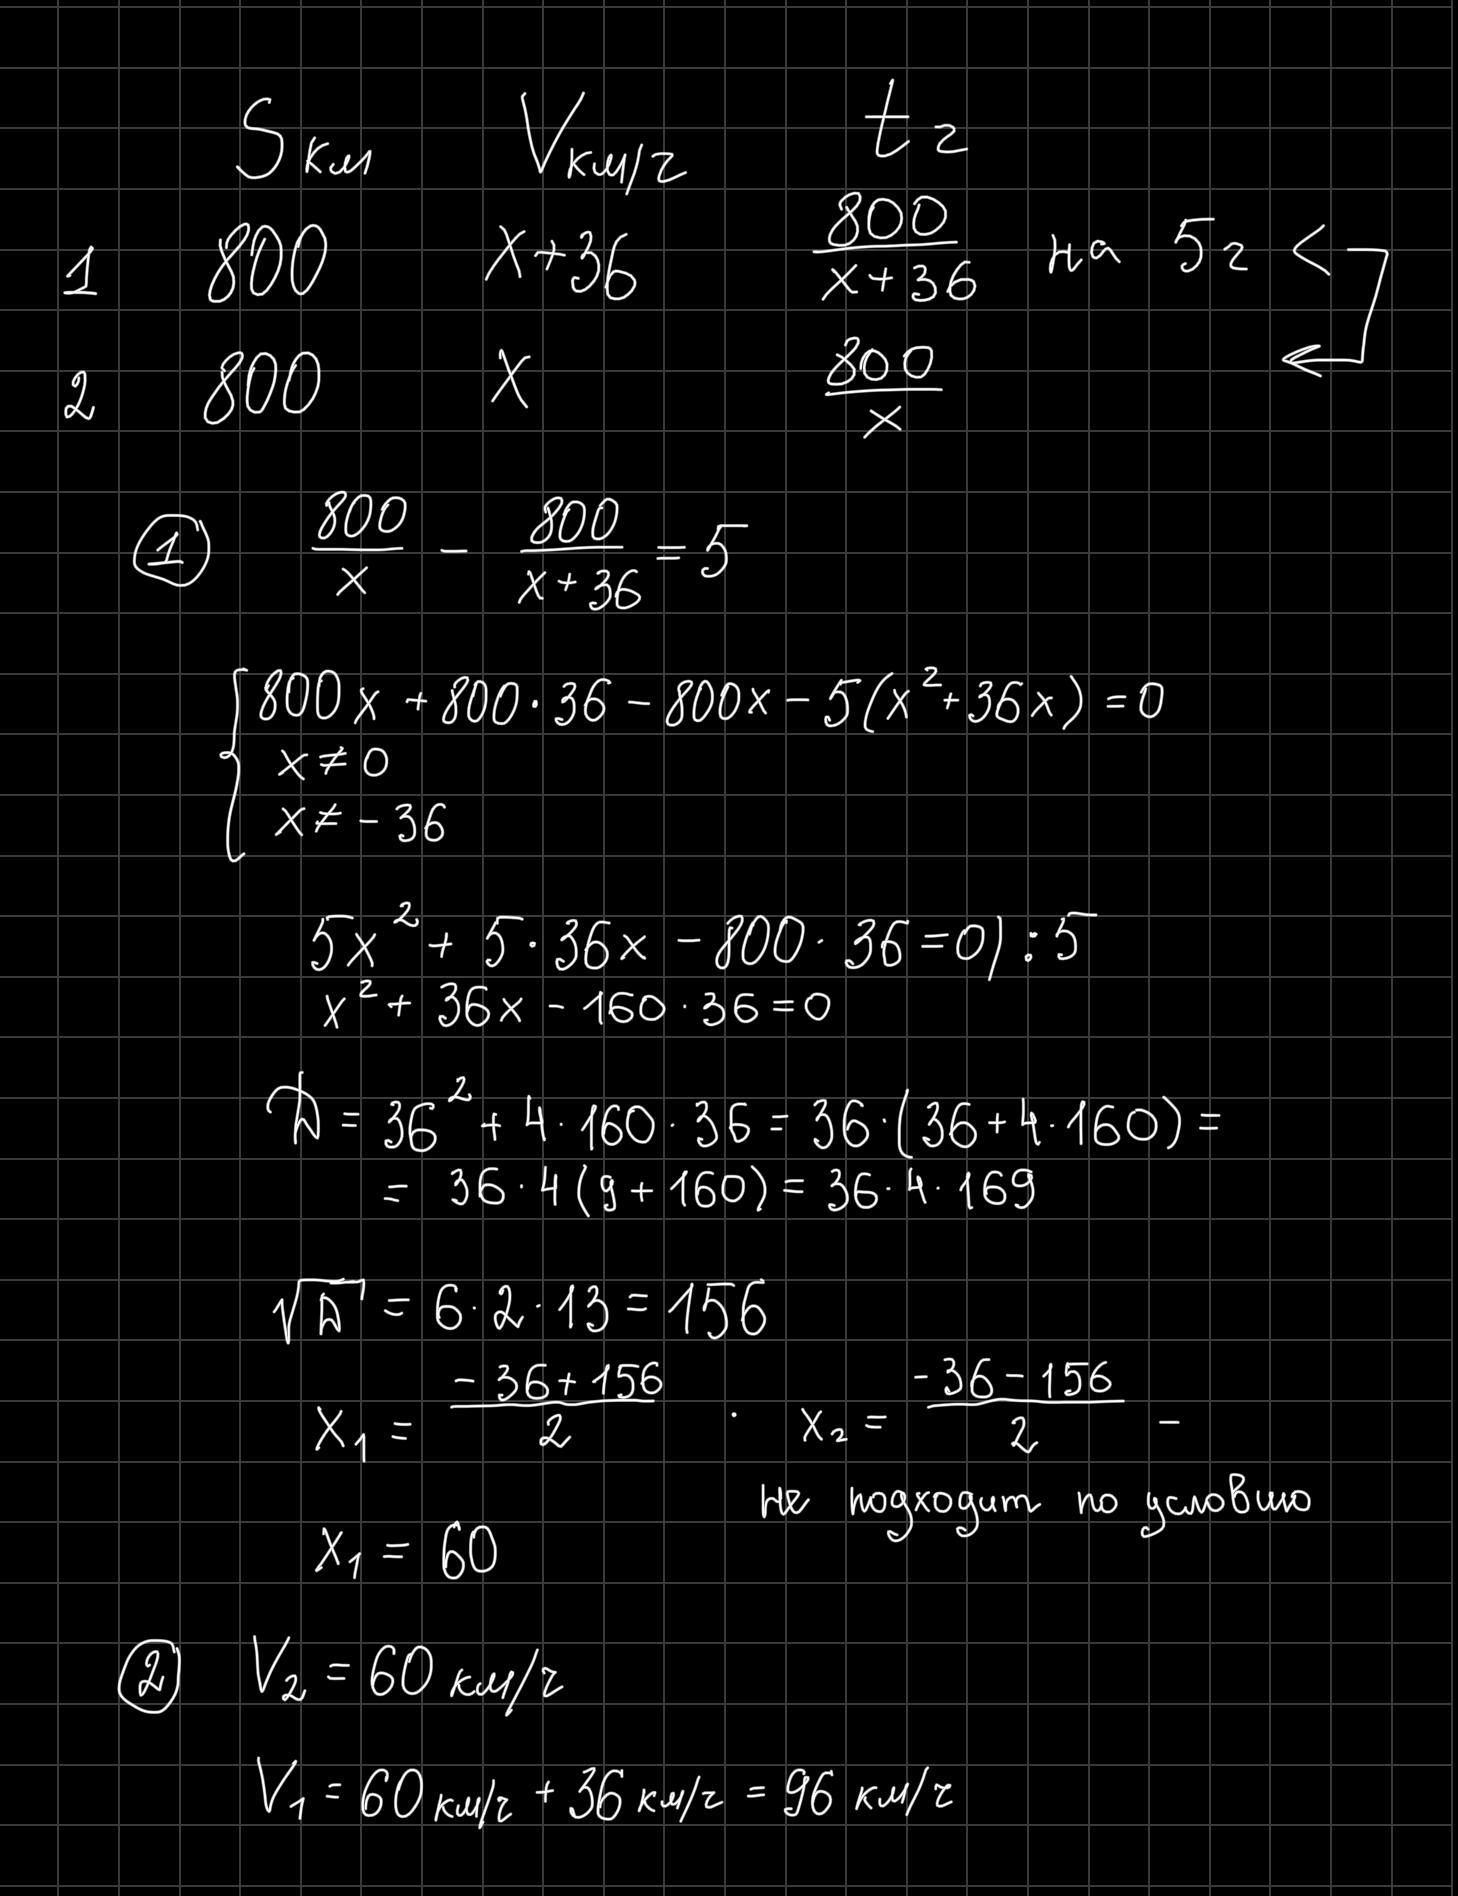 S км V км/ч t ч
1 800 x+36 800/(x+36) на 5ч <
2 800 x 800/x
① 800/x - 800/(x+36) = 5
{ 800x + 800·36 - 800x - 5(x²+36x) = 0
x ≠ 0
x ≠ -36
5x² + 5·36x - 800·36 = 0) :5
x² + 36x - 160·36 = 0
D = 36² + 4·160·36 = 36·(36+4·160) =
= 36·4(9+160) = 36·4·169
√D = 6·2·13 = 156
x₁ = (-36+156)/2 · x₂ = (-36-156)/2 -
не подходит по условию
x₁ = 60
② V₂ = 60 км/ч
V₁ = 60 км/ч + 36 км/ч = 96 км/ч